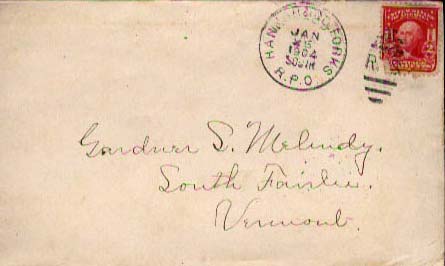 HANNAH & GD. FORKS
JAN
1904
R.P.O.
Gardner S. Melendy.
South Fairlee.
Vermont.